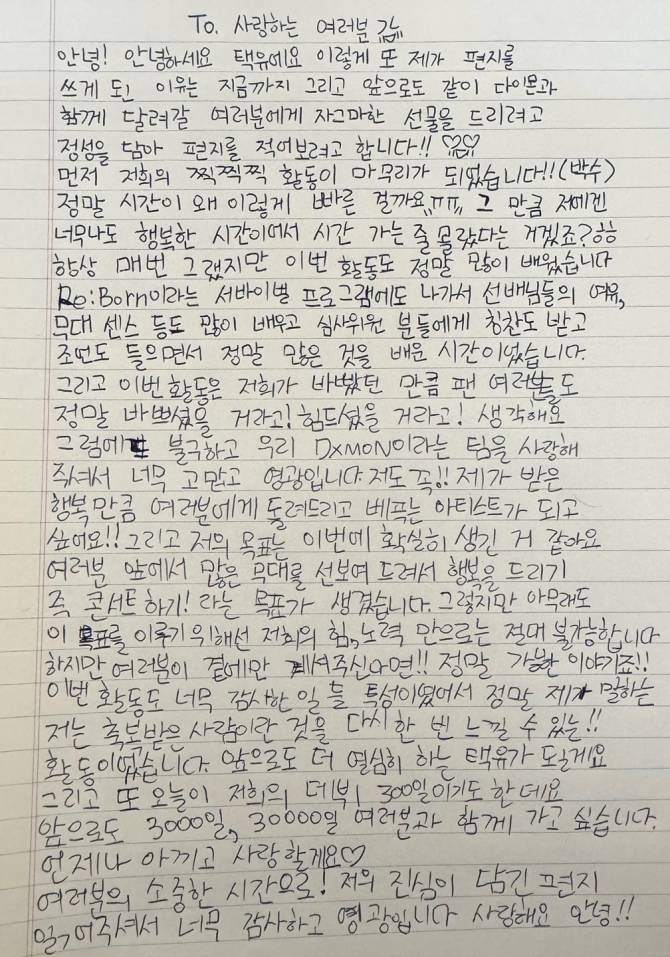 To. 사랑하는 여러분
안녕! 안녕하세요 택유에요 이렇게 또 제가 편지를
쓰게 된 이유는 지금까지 그리고 앞으로도 같이 다이몬과
함께 달려갈 여러분에게 자그마한 선물을 드리려고
정성을 담아 편지를 적어보려고 합니다!! ♡♡
먼저 저희의 찍찍찍 활동이 마무리가 되었습니다!!(박수)
정말 시간이 왜 이렇게 빠른 걸까요ㅠㅠ 그 만큼 저에겐
너무나도 행복한 시간이여서 시간 가는 줄 몰랐다는 거겠죠?ㅎㅎ
항상 매번 그랬지만 이번 활동도 정말 많이 배웠습니다
Re:Born이라는 서바이벌 프로그램에도 나가서 선배님들의 여유,
무대 센스 등도 많이 배우고 심사위원 분들에게 칭찬도 받고
조언도 들으면서 정말 많은 것을 배운 시간이었습니다.
그리고 이번 활동은 저희가 바빴던 만큼 팬 여러분들도
정말 바쁘셨을 거라고! 힘드셨을 거라고! 생각해요
그럼에도 불구하고 우리 DXMON이라는 팀을 사랑해
주셔서 너무 고맙고 영광입니다. 저도 꼭!! 제가 받은
행복만큼 여러분에게 돌려드리고 베푸는 아티스트가 되고
싶어요!! 그리고 저의 목표는 이번에 확실히 생긴 거 같아요
여러분 앞에서 많은 무대를 선보여 드려서 행복을 드리기
즉 콘서트하기! 라는 목표가 생겼습니다. 그렇지만 아무래도
이 목표를 이루기 위해선 저희의 힘, 노력 만으로는 절대 불가능합니다
하지만 여러분이 곁에만 계셔주신다면!! 정말 가능한 이야기죠!!
이번 활동도 너무 감사한 일 들 특성이였어서 정말 제가 말하는
저는 축복받은 사람이란 것을 다시 한 번 느낄 수 있는!!
활동이었습니다. 앞으로도 더 열심히 하는 택유가 될게요
그리고 또 오늘이 저희의 데뷔 300일이기도 한데요
앞으로도 3000일, 30000일 여러분과 함께 가고 싶습니다.
언제나 아끼고 사랑할게요♡
여러분의 소중한 시간으로! 저의 진심이 담긴 편지
읽어주셔서 너무 감사하고 영광입니다 사랑해요 안녕!!